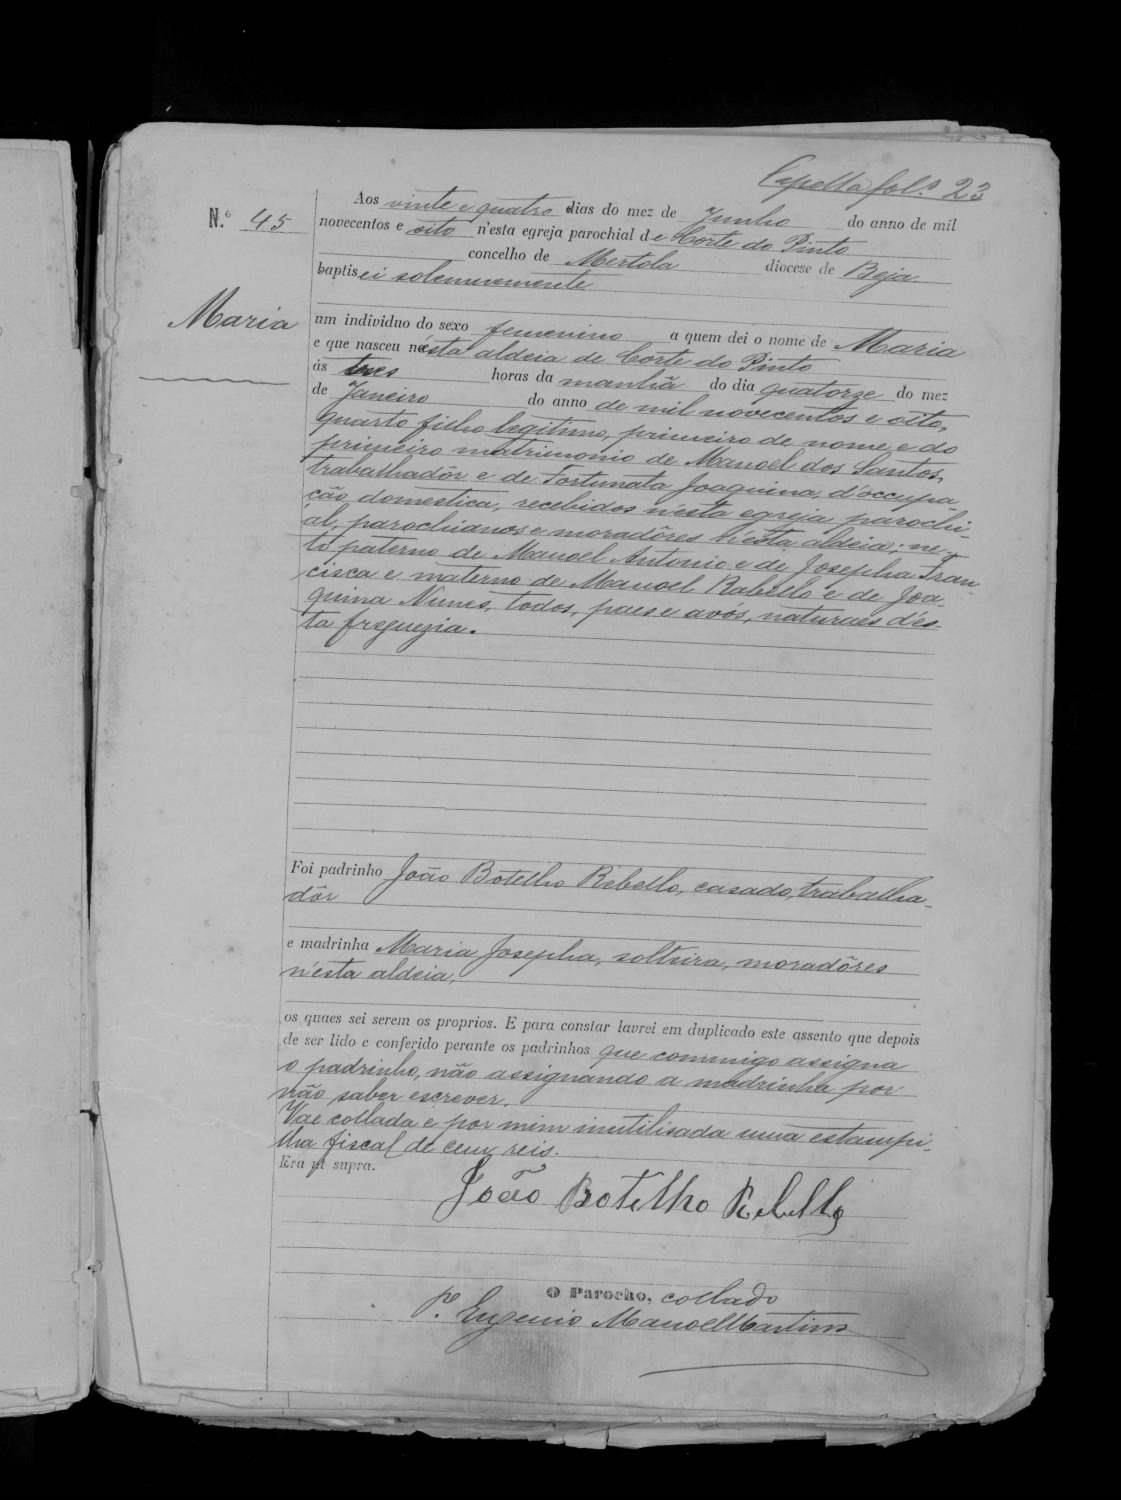 Capella fol.º 23
N.º 45
Aos vinte e quatro dias do mez de Junho do anno de mil
novecentos e oito n'esta egreja parochial de Corte do Pinto
concelho de Mertola diocese de Beja
baptisei solemnemente
Maria
um individuo do sexo femenino a quem dei o nome de Maria
e que nasceu nésta aldeia de Corte do Pinto
ás tres horas da manhã do dia quatorze do mez
de Janeiro do anno de mil novecentos e oito,
quarto filho legitimo, primeiro de nome e do
primeiro matrimonio de Manoel dos Santos,
trabalhadôr e de Fortunata Joaquina, d'occupa-
ção domestica, recebidos n'ésta egreja parochi-
al, parochianos e moradôres n'ésta aldeia; ne-
to paterno de Manoel Antonio e de Josepha Fran-
cisca e materno de Manoel Rabello e de Joa-
quina Nunes, todos, paes e avós, naturaes d'és-
ta freguezia.
Foi padrinho João Botelho Rebello, casado, trabalha-
dôr
e madrinha Maria Josepha, solteira, moradôres
n'ésta aldeia,
os quaes sei serem os proprios. E para constar lavrei em duplicado este assento que depois
de ser lido e conferido perante os padrinhos que commigo assigna
o padrinho, não assignando a madrinha por
não saber escrever.
Vae collada e por mim inutilisada uma estampi-
lha fiscal de cem reis.
Era ut supra.
João Botelho Rebello
O Parocho, collado
P.e Eugenio Manoel Martins